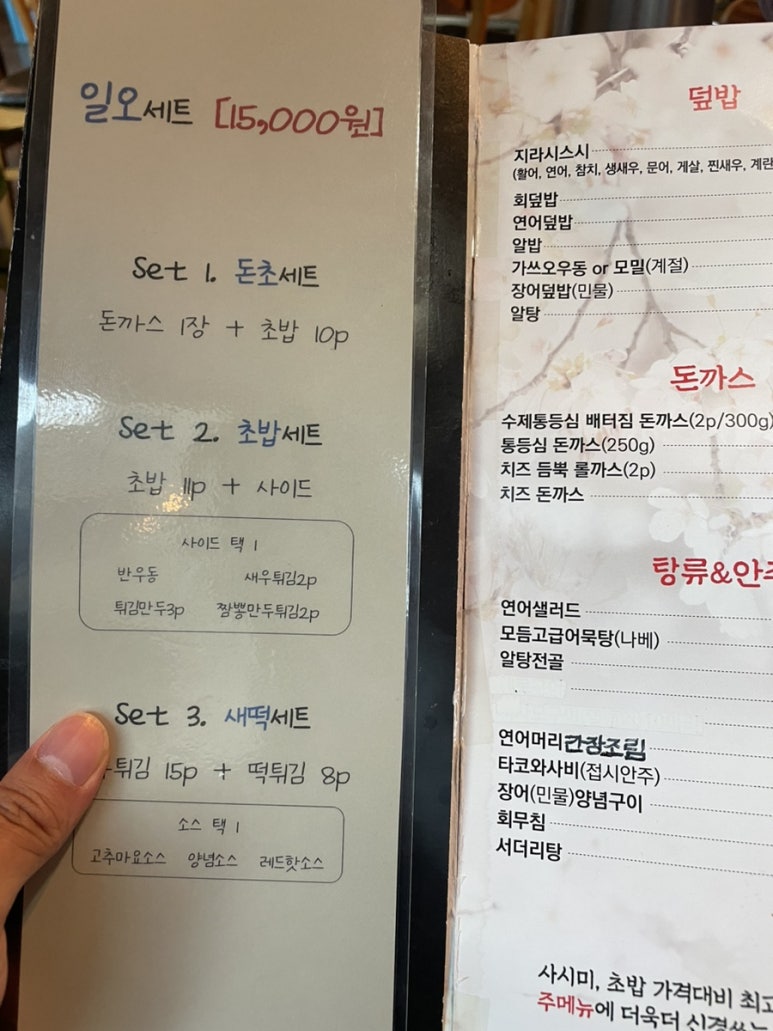 일오세트 [15,000원]
Set 1. 돈초세트
돈까스 1장 + 초밥 10p
Set 2. 초밥세트
초밥 11p + 사이드
사이드 택 1
반우동 새우튀김2p
튀김만두3p 짬뽕만두튀김2p
Set 3. 새떡세트
튀김 15p + 떡튀김 8p
소스 택 1
고추마요소스 양념소스 레드핫소스
덮밥
지라시스시
(활어, 연어, 참치, 생새우, 문어, 게살, 찐새우, 계란
회덮밥
연어덮밥
알밥
가쓰오우동 or 모밀(계절)
장어덮밥(민물)
알탕
돈까스
수제통등심 배터짐 돈까스(2p/300g)
통등심 돈까스(250g)
치즈 듬뿍 롤까스(2p)
치즈 돈까스
탕류&안주
연어샐러드
모듬고급어묵탕(나베)
알탕전골
연어머리간장조림
타코와사비(접시안주)
장어(민물)양념구이
회무침
서더리탕
사시미, 초밥 가격대비 최고
주메뉴에 더욱더 신경쓰는